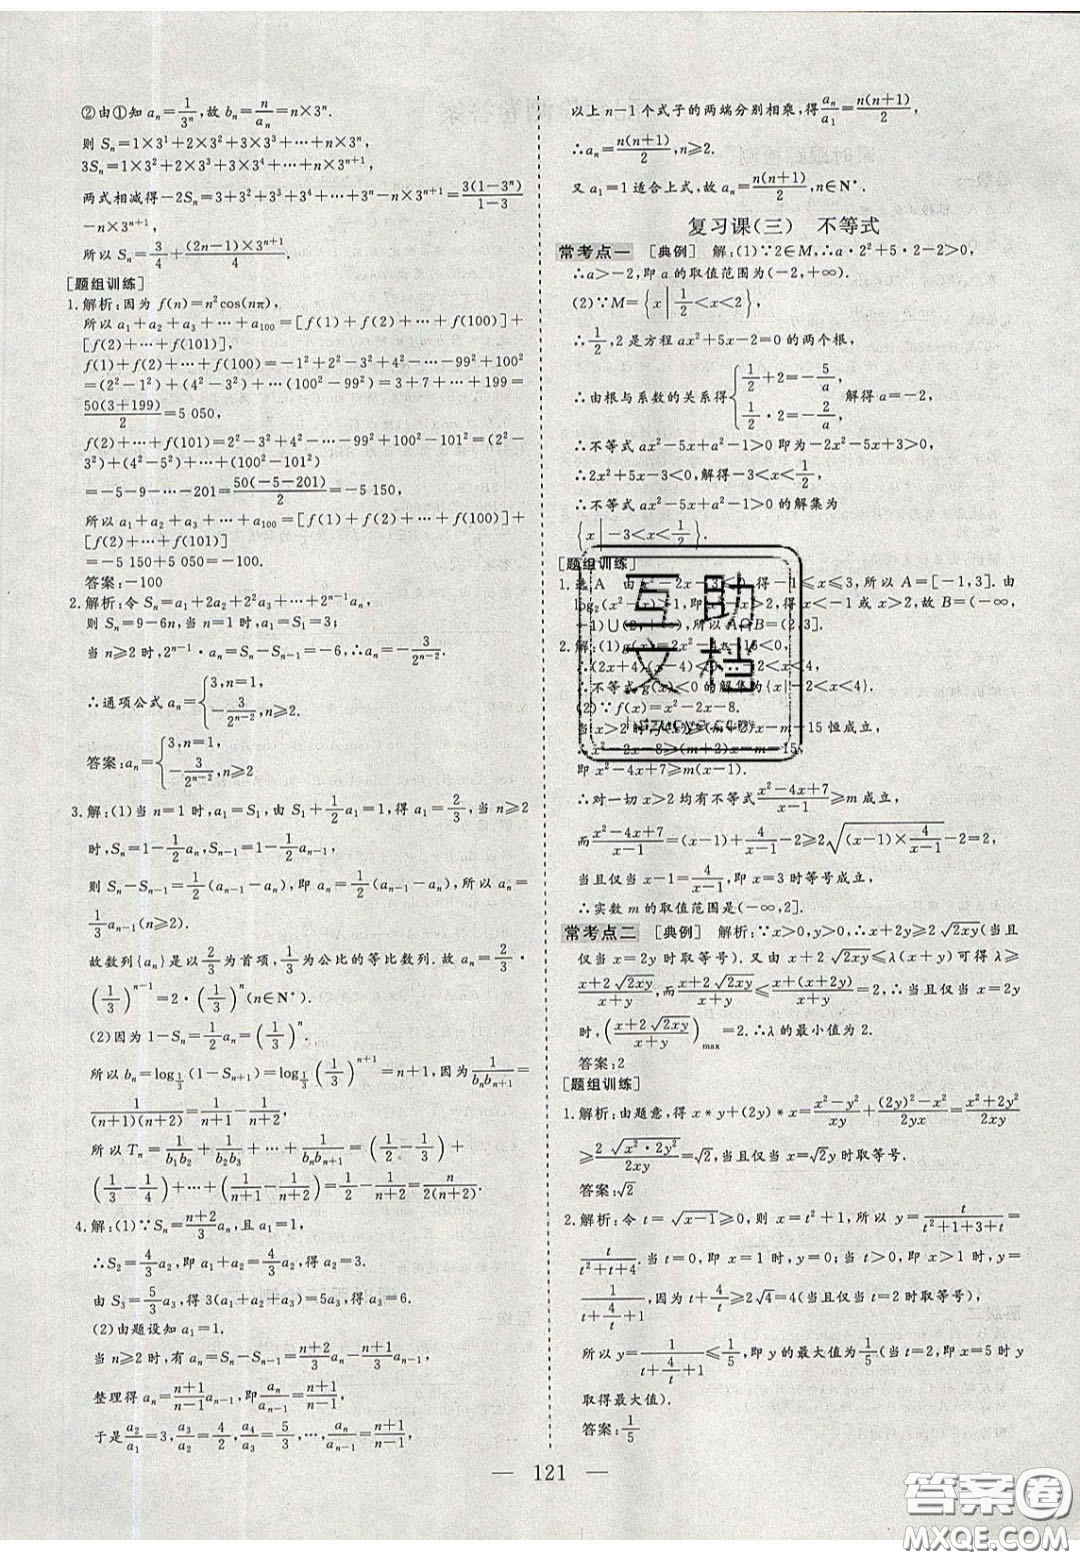 ②由①知 aₙ=1/3ⁿ,故 bₙ=n/aₙ=n×3ⁿ.
则 Sₙ=1×3¹+2×3²+3×3³+…+n×3ⁿ,
3Sₙ=1×3²+2×3³+3×3⁴+…+n×3ⁿ⁺¹,
两式相减得-2Sₙ=3+3²+3³+…+3ⁿ-n×3ⁿ⁺¹=3(1-3ⁿ)/(1-3)
-n×3ⁿ⁺¹,
所以 Sₙ=3/4+(2n-1)×3ⁿ⁺¹/4.
[题组训练]
1.解析:因为 f(n)=n²cos(nπ),
所以 a₁+a₂+a₃+…+a₁₀₀=[f(1)+f(2)+…+f(100)]+
[f(2)+…+f(101)],
f(1)+f(2)+…+f(100)=-1²+2²-3²+4²-…-99²+100²
=(2²-1²)+(4²-3²)+…(100²-99²)=3+7+…+199=
50(3+199)/2=5 050,
f(2)+…+f(101)=2²-3²+4²-…-99²+100²-101²=(2²-
3²)+(4²-5²)+…+(100²-101²)
=-5-9-…-201=50(-5-201)/2=-5 150,
所以 a₁+a₂+a₃+…+a₁₀₀=[f(1)+f(2)+…+f(100)]+
[f(2)+…+f(101)]
=-5 150+5 050=-100.
答案:-100
2.解析:令 Sₙ=a₁+2a₂+2²a₃+…+2ⁿ⁻¹aₙ,
则 Sₙ=9-6n,当 n=1 时,a₁=S₁=3;
当 n≥2 时,2ⁿ⁻¹·aₙ=Sₙ-Sₙ₋₁=-6,∴aₙ=-3/2ⁿ⁻².
∴通项公式 aₙ={3,n=1,
-3/2ⁿ⁻²,n≥2.
答案:aₙ={3,n=1,
-3/2ⁿ⁻²,n≥2
3.解:(1)当 n=1 时,a₁=S₁,由 S₁+1/2a₁=1,得 a₁=2/3,当 n≥2
时,Sₙ=1-1/2aₙ,Sₙ₋₁=1-1/2aₙ₋₁,
则 Sₙ-Sₙ₋₁=1/2(aₙ₋₁-aₙ),即 aₙ=1/2(aₙ₋₁-aₙ),所以 aₙ=
1/3aₙ₋₁(n≥2).
故数列{aₙ}是以2/3为首项,1/3为公比的等比数列.故 aₙ=2/3·
(1/3)ⁿ⁻¹=2·(1/3)ⁿ(n∈N*).
(2)因为 1-Sₙ=1/2aₙ=(1/3)ⁿ.
所以 bₙ=log_{1/3}(1-Sₙ₊₁)=log_{1/3}(1/3)ⁿ⁺¹=n+1,因为1/(bₙbₙ₊₁)=
1/((n+1)(n+2))=1/(n+1)-1/(n+2),
所以 Tₙ=1/(b₁b₂)+1/(b₂b₃)+…+1/(bₙbₙ₊₁)=(1/2-1/3)+
(1/3-1/4)+…+(1/(n+1)-1/(n+2))=1/2-1/(n+2)=n/(2(n+2)).
4.解:(1)∵Sₙ=(n+2)/3aₙ,且 a₁=1,
∴S₂=4/3a₂,即 a₁+a₂=4/3a₂,得 a₂=3.
由 S₃=5/3a₃,得 3(a₁+a₂+a₃)=5a₃,得 a₃=6.
(2)由题设知 a₁=1.
当 n≥2 时,有 aₙ=Sₙ-Sₙ₋₁=(n+2)/3aₙ-(n+1)/3aₙ₋₁,
整理得 aₙ=(n+1)/(n-1)aₙ₋₁,即aₙ/aₙ₋₁=(n+1)/(n-1),
于是 a₂/a₁=3,a₃/a₂=4/2,a₄/a₃=5/3,…,aₙ/aₙ₋₁=(n+1)/(n-1),
以上 n-1 个式子的两端分别相乘,得aₙ/a₁=n(n+1)/2,
∴aₙ=n(n+1)/2,n≥2.
又 a₁=1 适合上式,故 aₙ=n(n+1)/2,n∈N*.
复习课(三) 不等式
常考点一 [典例] 解:(1)∵2∈M,∴a·2²+5·2-2>0,
∴a>-2,即 a 的取值范围为(-2,+∞).
(2)∵M={x|1/2<x<2},
∴1/2,2 是方程 ax²+5x-2=0 的两个根,
∴由根与系数的关系得{1/2+2=-5/a, 1/2·2=-2/a 解得 a=-2,
∴不等式 ax²-5x+a²-1>0 即为-2x²-5x+3>0,
∴2x²+5x-3<0,解得-3<x<1/2,
∴不等式 ax²-5x+a²-1>0 的解集为
{x|-3<x<1/2}.
[题组训练]
1.选 A 由 x²-2x-3≤0,得-1≤x≤3,所以 A=[-1,3].由
log₂(x²-x)>1,即x²-x>2,得 x<-1 或 x>2,故 B=(-∞,
-1)∪(2,+∞),所以 A∩B=(2,3].
2.解:(1)g(x)=2x²-4x-16<0,
∴(2x+4)(x-4)<0,∴-2<x<4,
∴不等式 g(x)<0 的解集为{x|-2<x<4}.
(2)∵f(x)=x²-2x-8.
当 x>2 时,f(x)≥(m+2)x-m-15 恒成立,
∴x²-2x-8≥(m+2)x-m-15,
即 x²-4x+7≥m(x-1).
∴对一切 x>2 均有不等式(x²-4x+7)/(x-1)≥m 成立,
而(x²-4x+7)/(x-1)=(x-1)+4/(x-1)-2≥2√((x-1)×4/(x-1))-2=2.
当且仅当 x-1=4/(x-1),即 x=3 时等号成立,
∴实数 m 的取值范围是(-∞,2].
常考点二 [典例] 解析:∵x>0,y>0,∴x+2y≥2√2xy(当且
仅当 x=2y 时取等号).又由 x+2√2xy≤λ(x+y)可得 λ≥
(x+2√2xy)/(x+y),而(x+2√2xy)/(x+y)≤(x+(x+2y))/(x+y)=2,∴当且仅当 x=2y
时,((x+2√2xy)/(x+y))max=2.∴λ 的最小值为 2.
答案:2
[题组训练]
1.解析:由题意,得 x*y+(2y)*x=(x²-y²)/xy+((2y)²-x²)/2yx=(x²+2y²)/2xy
≥2√(x²·2y²)/2xy=√2,当且仅当 x=√2y 时取等号.
答案:√2
2.解析:令 t=√(x-1)≥0,则 x=t²+1,所以 y=t/(t²+1+3+t)=
t/(t²+t+4).当 t=0,即 x=1 时,y=0;当 t>0,即 x>1 时,y=
1/(t+4/t+1),因为 t+4/t≥2√4=4(当且仅当 t=2 时取等号),
所以 y=1/(t+4/t+1)≤1/5,即 y 的最大值为1/5(当 t=2,即 x=5 时 y
取得最大值).
答案:1/5
— 121 —
互助
文档
答案圈
MXQE.COM